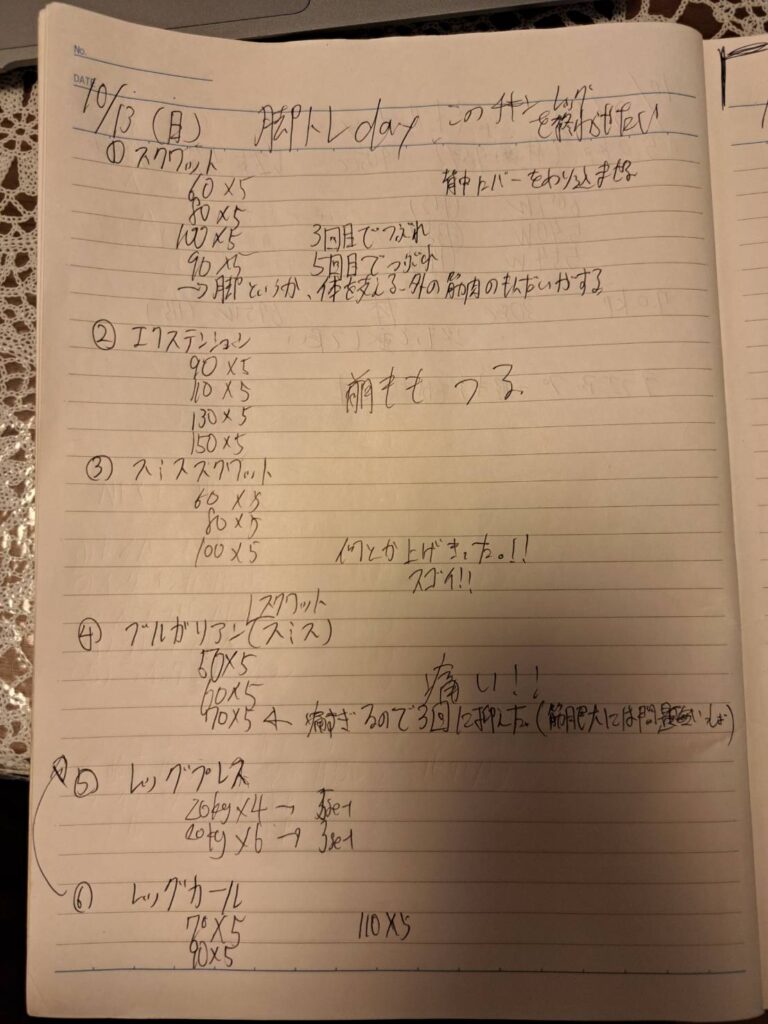 No.
DATE
10/13 (日) 脚トレday このチキンレッグを終わらせたい
① スクワット
60×5 背中にバーをめり込ませる
80×5
100×5 3回目でつぶれ
90×5 5回目でつぶれ
→脚というか、体を支える外の筋肉のもんだいがする
② エクステンション
90×5
110×5 前ももつる
130×5
150×5
③ スミススクワット
60×5
80×5
100×5 何とか上げきった。!!
スゴイ!!
④ ブルガリアンスクワット(スミス)
50×5
60×5 痛い!!
70×5 ← 痛すぎるので3回に抑えた。(筋肥大には問題無いっしょ)
⑤ レッグプレス
20kg×4 → 3set
20kg×6 → 3set
⑥ レッグカール
70×5 110×5
90×5